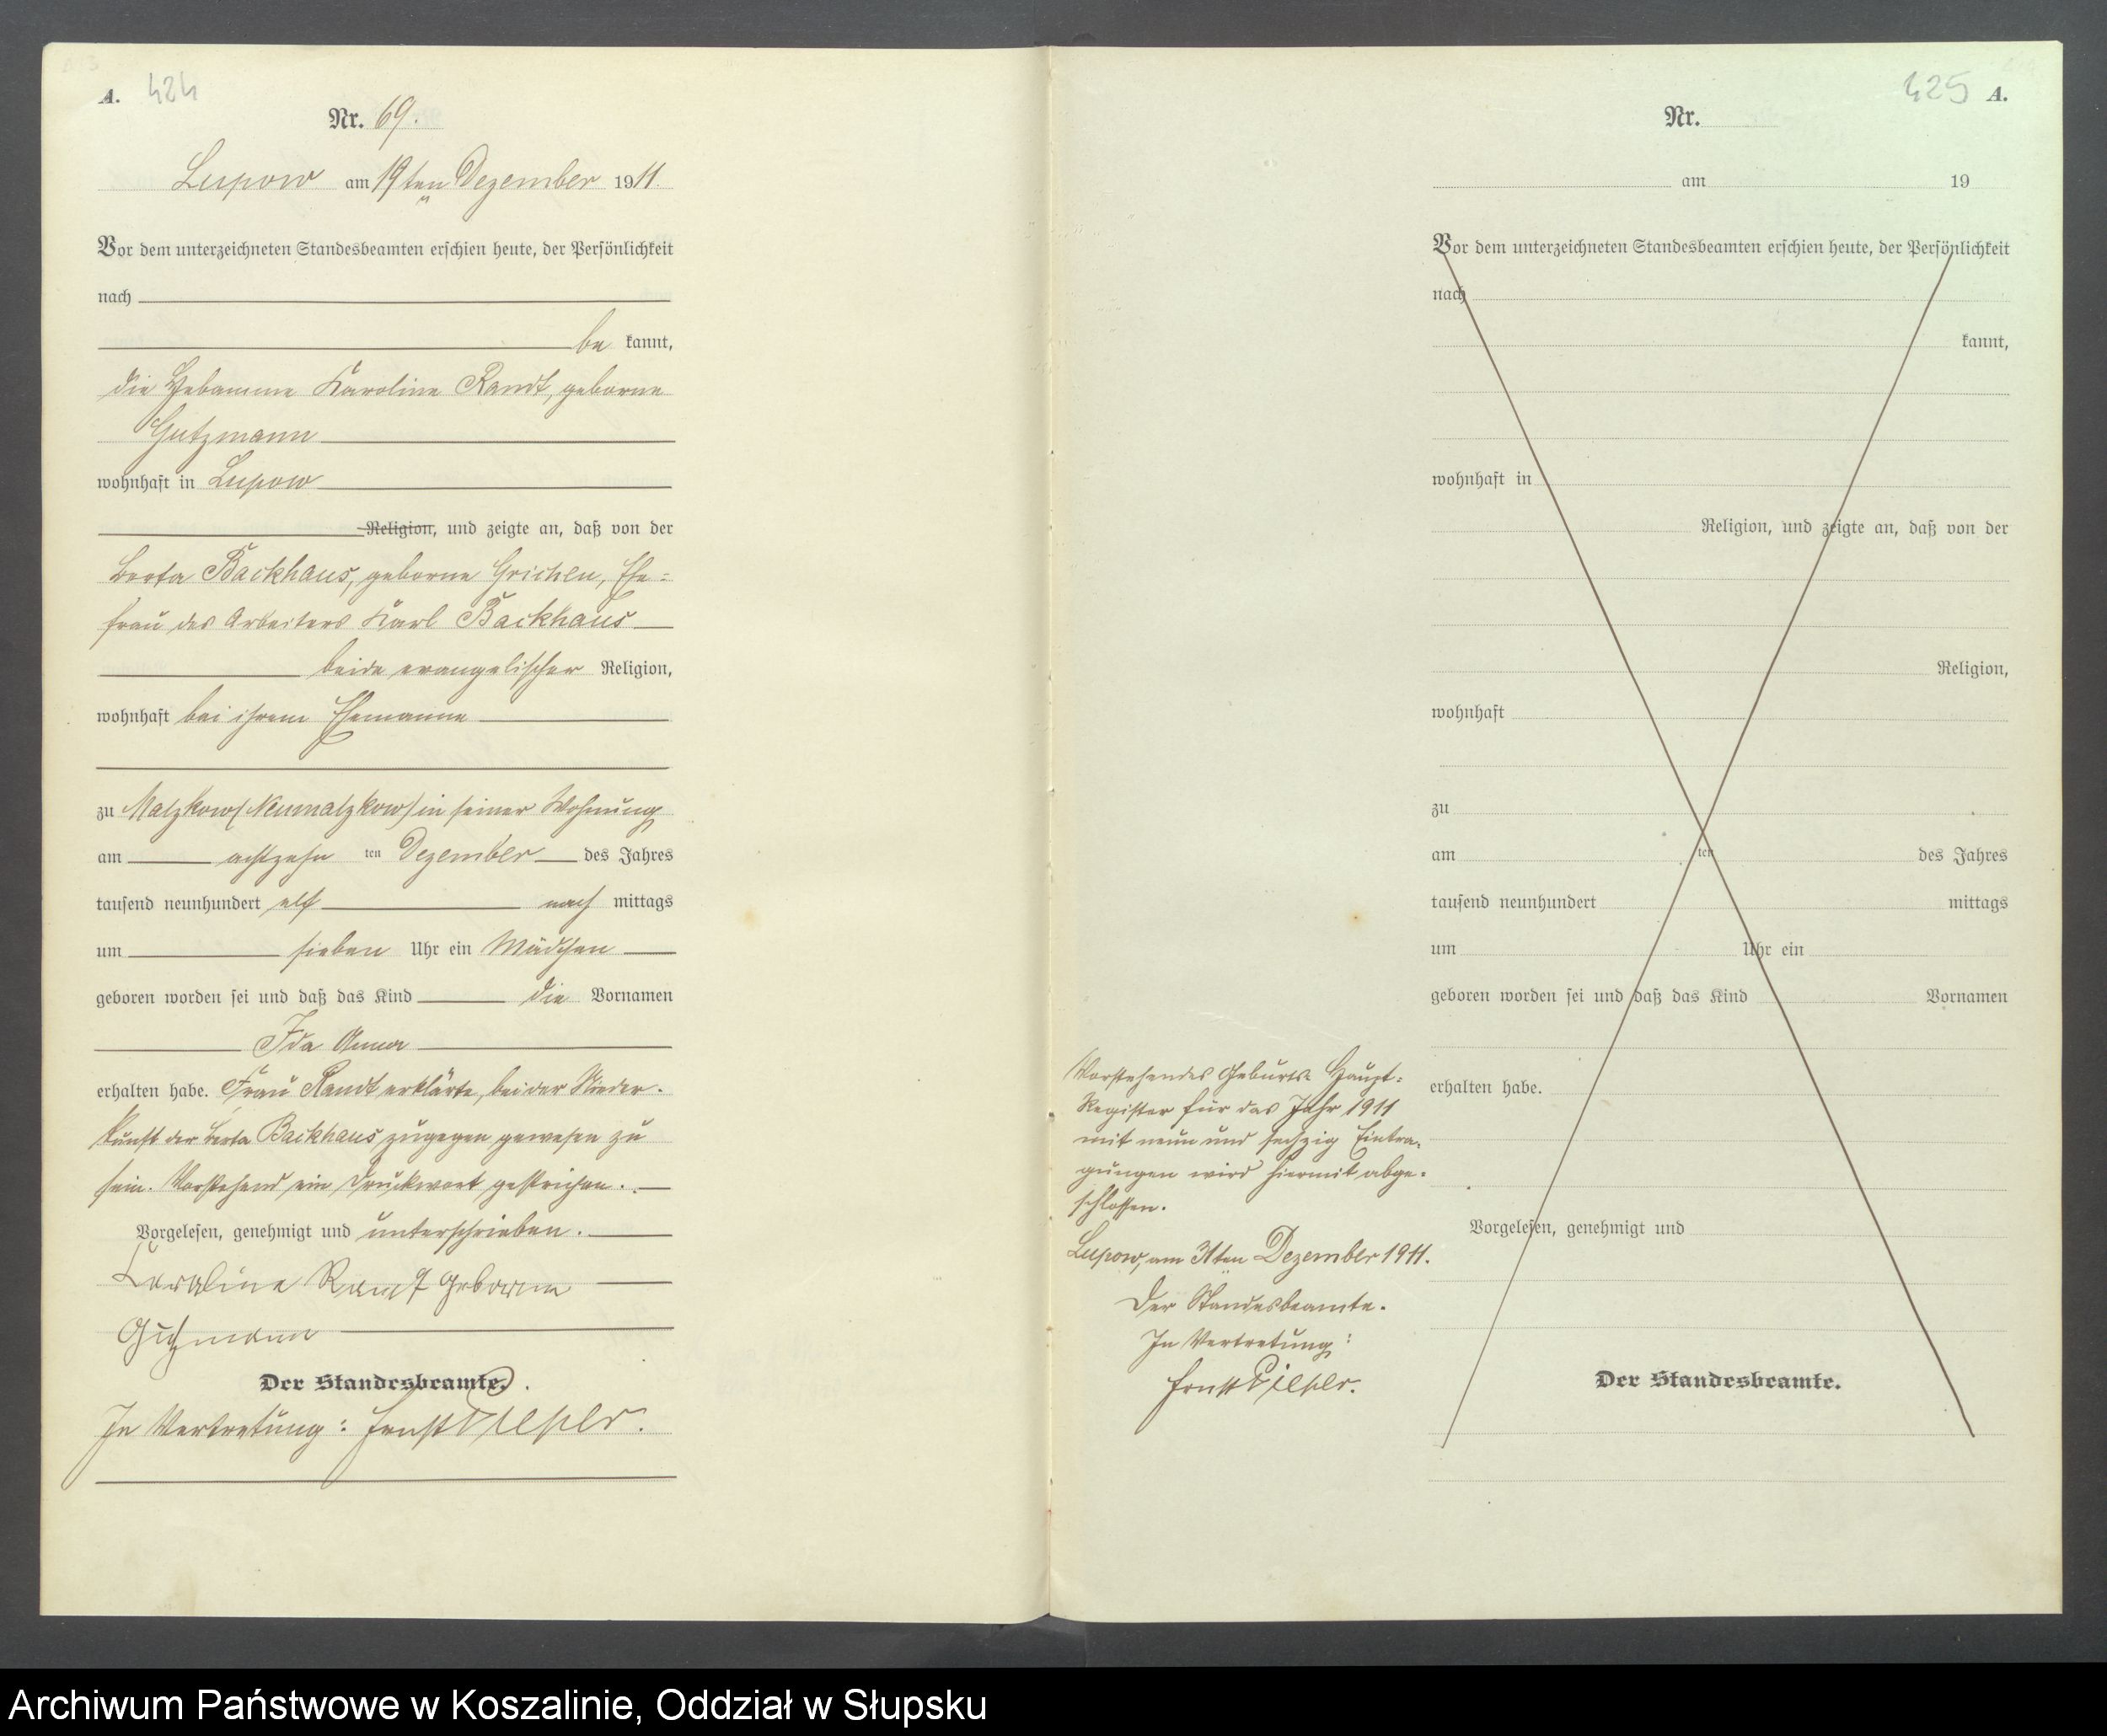 A. 424
Nr. 69.
Lupow am 19ten Dezember 1911.
Vor dem unterzeichneten Standesbeamten erschien heute, der Persönlichkeit
nach
be kannt,
die Hebamme Karoline Randt, geborne
Gutzmann
wohnhaft in Lupow
Religion, und zeigte an, daß von der
Berta Backhaus, geborne Grichen, Ehe=
frau des Arbeiters Karl Backhaus
beide evangelischer Religion,
wohnhaft bei ihrem Ehemanne
zu Malzkow (Neumalzkow) in seiner Wohnung
am achtzehn ten Dezember des Jahres
tausend neunhundert elf nach mittags
um sieben Uhr ein Mädchen
geboren worden sei und daß das Kind die Vornamen
Ida Anna
erhalten habe. Frau Randt erklärte, bei der Nieder-
kunft der Berta Backhaus zugegen gewesen zu
sein. Vorstehend ein Druckwort gestrichen.
Vorgelesen, genehmigt und unterschrieben.
Karoline Randt geborene
Gutzmann
Der Standesbeamte.
In Vertretung: Ernst
425 A.
Nr.
am 19
Vor dem unterzeichneten Standesbeamten erschien heute, der Persönlichkeit
nach
kannt,
wohnhaft in
Religion, und zeigte an, daß von der
Religion,
wohnhaft
zu
am ten des Jahres
tausend neunhundert mittags
um Uhr ein
geboren worden sei und daß das Kind Vornamen
erhalten habe.
Vorgelesen, genehmigt und
Der Standesbeamte.
Vorstehendes Geburts-Haupt=
Register für das Jahr 1911
mit neun und sechzig Eintra-
gungen wird hiermit abge-
schlossen.
Lupow, am 31ten Dezember 1911.
Der Standesbeamte.
In Vertretung:
Ernst
Archiwum Państwowe w Koszalinie, Oddział w Słupsku